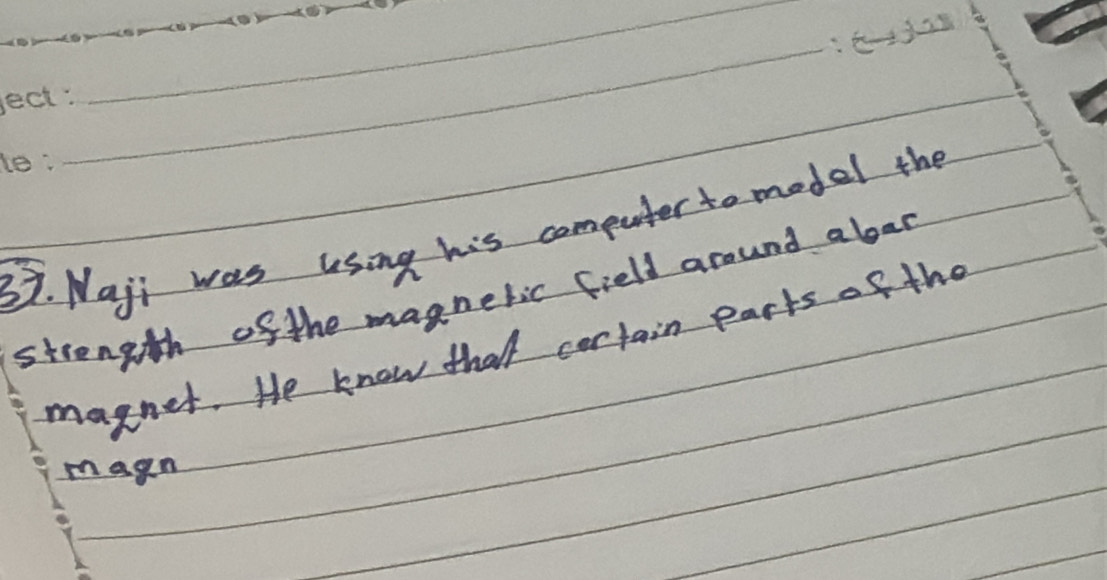 ject :
التاريخ :
te :
37. Naji was using his computer to model the
strength of the magnetic field around a bar
magnet. He know that certain parts of the
magn